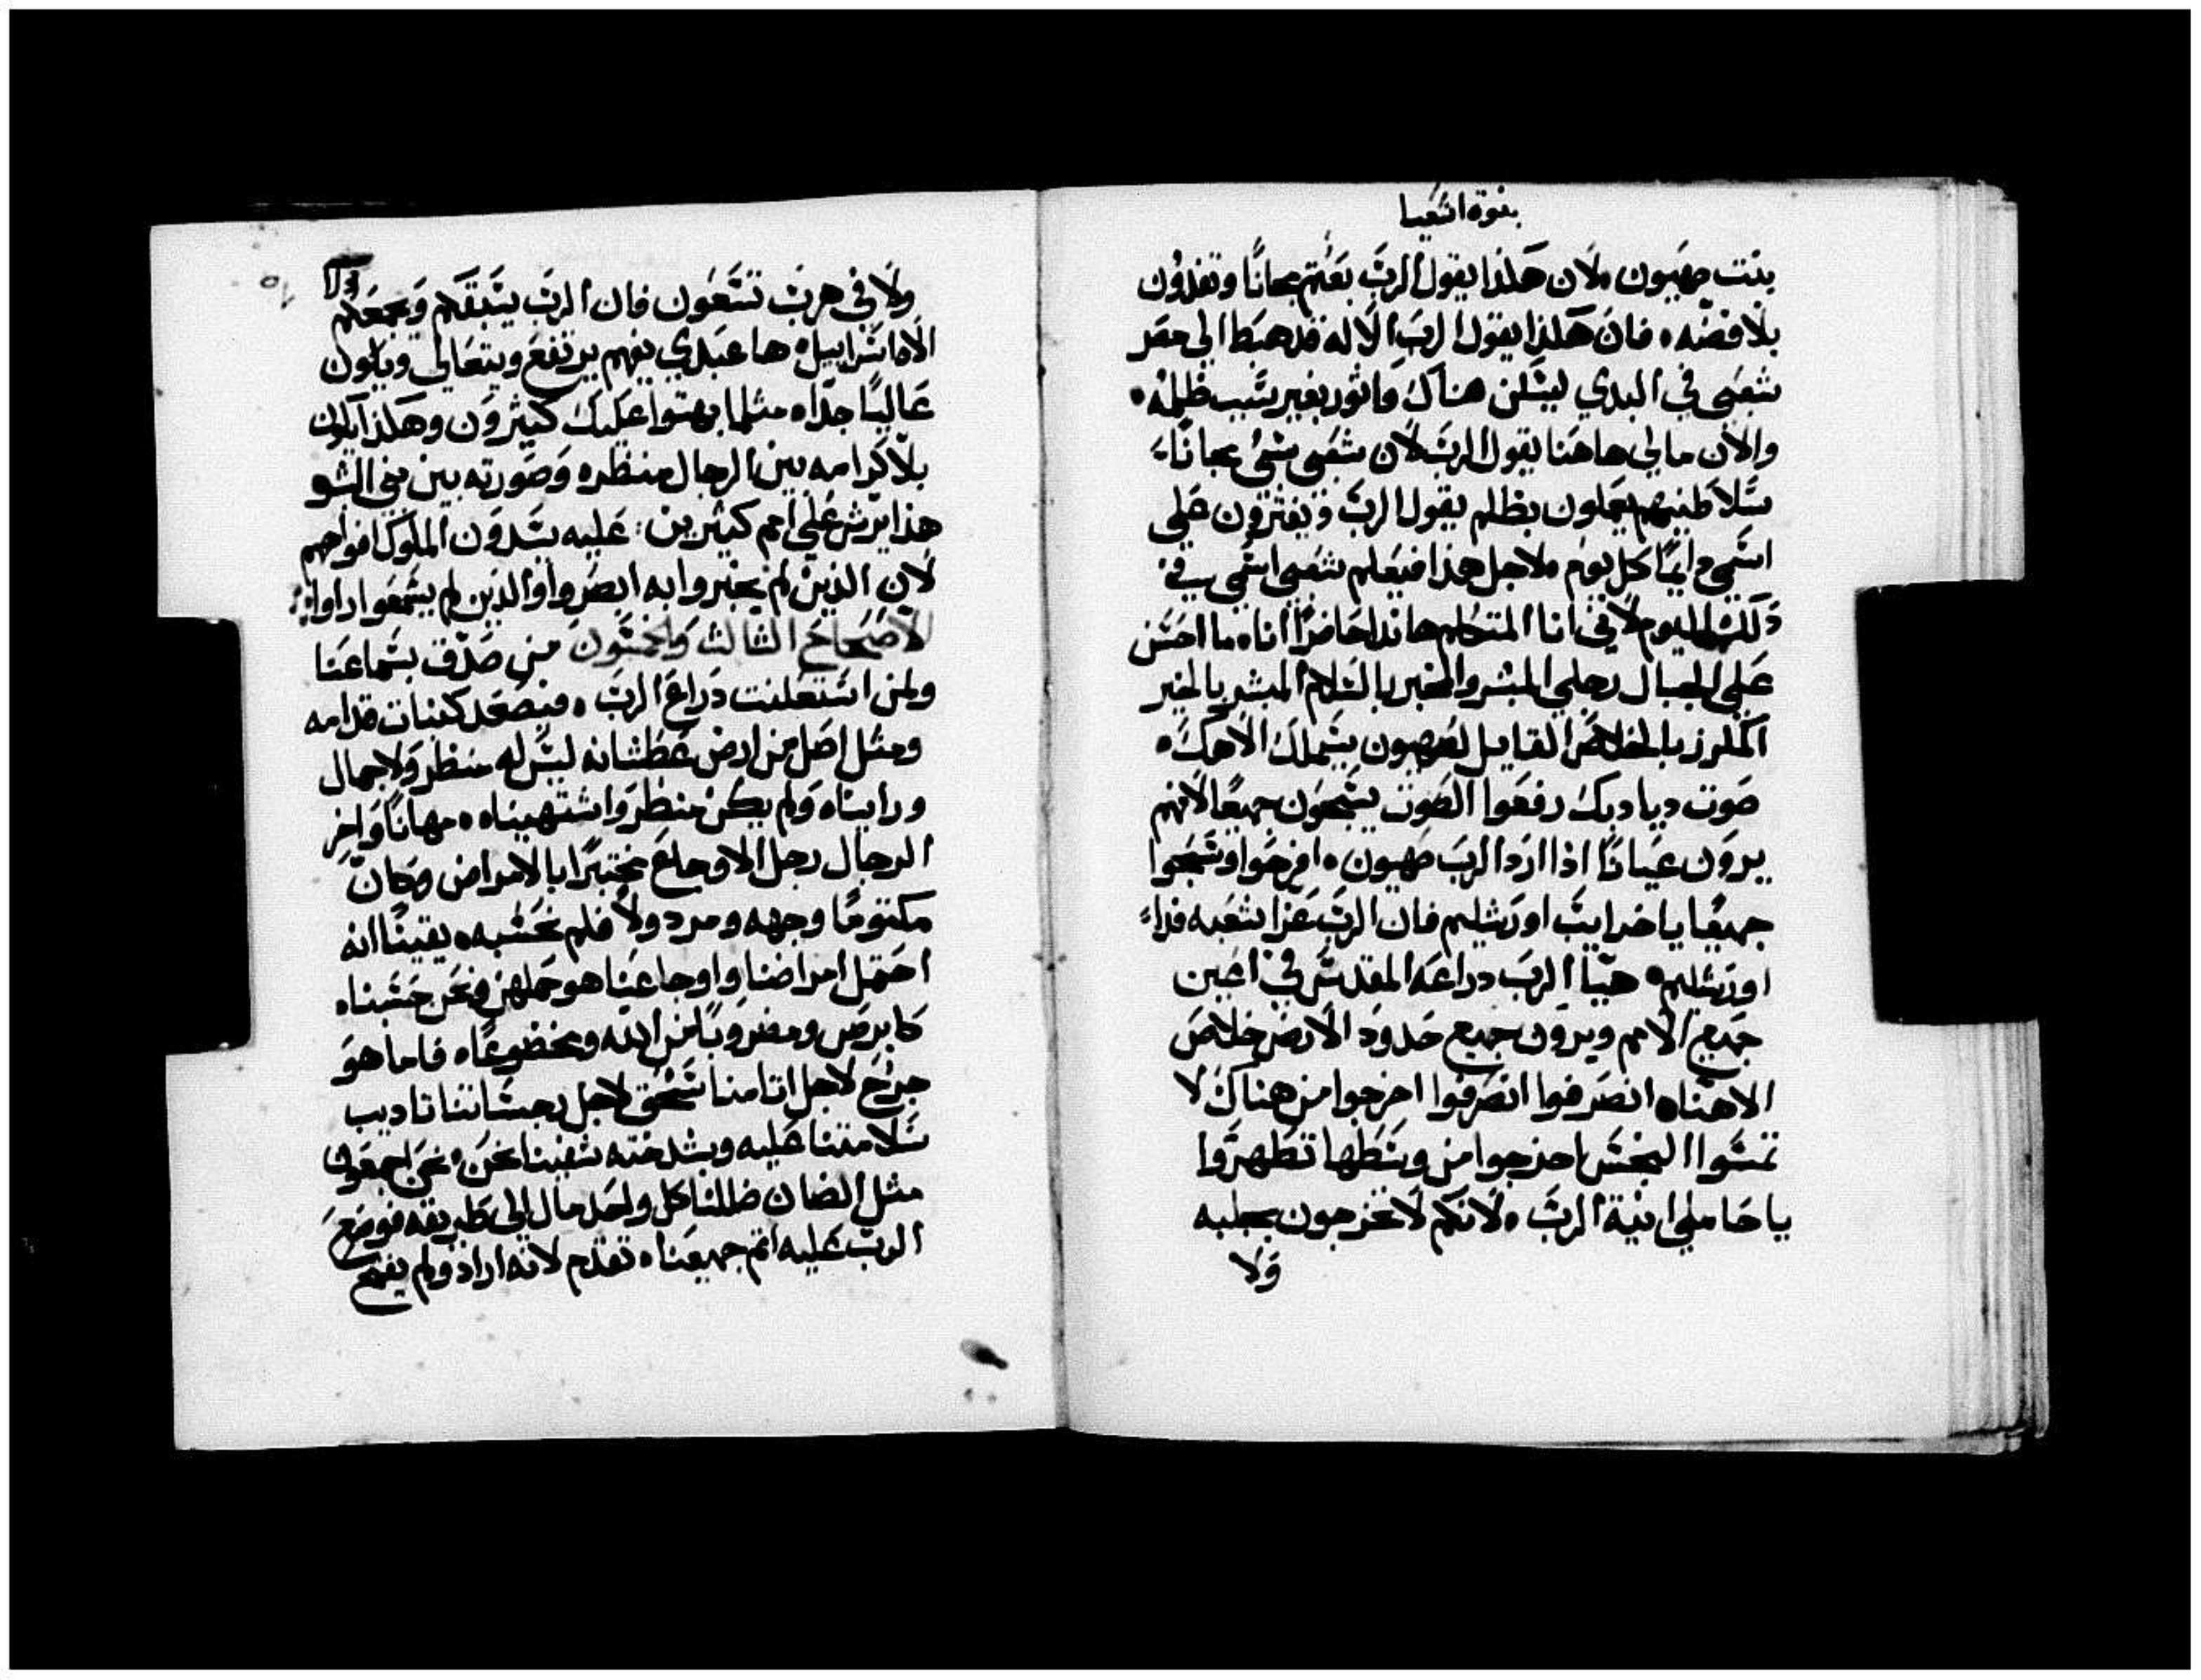 بنوة اشعيا
بنت صهيون ۰ لان هكذا يقول الرب بعتم مجانًا وتفدون
بلا فضه ۰ فان هكذا يقول الرب الاله قد هبط الي مصر
شعبي في البدي ليسكن هناك واثور بغير سبب ظلمه ۰
والان ما لي هاهنا يقول الرب لان شعبي سُبي مجانًا
سلاطينهم يعملون بظلم يقول الرب ويفترون علي
اسمي دايمًا كل يوم ۰ لاجل هذا فيعلم شعبي اسمي في
ذلك اليوم لاني انا المتكلم هاندا حاضرًا انا ۰ ما احسن
علي الجبال رجلي المبشر والمخبر بالسلام المبشر بالخير
المكرز بالخلاص القايل لصهيون سيملك الاهك ۰
صوت ديادبك رفعوا الصوت يسبحون جميعًا لانهم
يرون عيانًا اذا ارد الرب صهيون ۰ افرحوا وسبحوا
جميعًا يا خرايب اورشليم فان الرب عزا شعبه فدا
اورشليم ۰ هيا الرب دراعه المقدس في اعين
جميع الامم ويرون جميع حدود الارض خلاص
الاهنا ۰ انصرفوا انصرفوا اخرجوا من هناك لا
تمسوا النجس اخرجوا من وسطها تطهروا
يا حاملي انية الرب ۰ لانكم لا تخرجون بجلبه
ولا
ولا في هرب تسعون فان الرب يسبقكم ويجمعكم
الاه اسراييل ۰ ها عبدي يفهم يرتفع ويتعالي ويكون
عاليًا جدًا ۰ مثلما بهتوا عليك كثيرون وهكذا يكون
بلا كرامه بين الرجال منظره وصورته بين بني البشر
هذا يرش علي امم كثيرين : عليه يسدون الملوك افواههم
لان الذين لم يخبروا به ابصروا والذين لم يسمعوا راوا
الاصحاح الثالث والخمسون من صدق بسماعنا
ولمن استعلنت دراع الرب ۰ فيصعد كنبات قدامه
ومثل اصل من ارض عطشانه ليس له منظر ولا جمال
ورايناه ولم يكن منظر واشتهيناه ۰ مهانًا واخر
الرجال رجل الاوجاع مختبرًا بالامراض وكان
مكتومًا وجهه ومردولًا فلم نحسبه ۰ يقينًا انه
احتمل امراضنا واوجاعنا هو حملهن ونحن حسبناه
كابرص ومضروبًا من الله ومخضوعًا ۰ فاما هو
جرح لاجل اتامنا سُحق لاجل رجساتنا تاديب
سلامتنا عليه وبشدخته شفينا نحن ۰ نحن اجمعون
مثل الضان ضللنا كل واحد مال الي طريقه فوضع
الرب عليه اتم جميعنا ۰ تقدم لانه اراد ولم يفتح